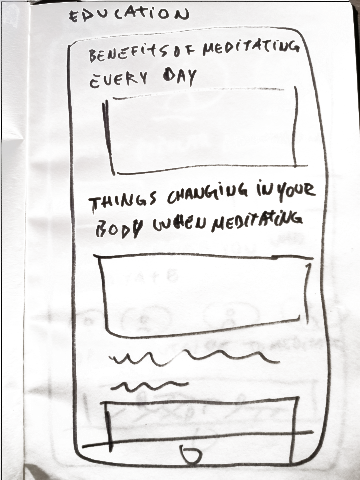 EDUCATION
BENEFITS OF MEDITATING
EVERY DAY
THINGS CHANGING IN YOUR
BODY WHEN MEDITATING